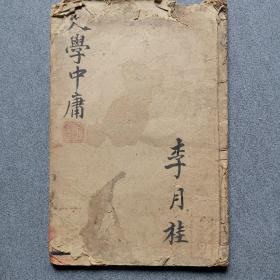 大學中庸
李月桂